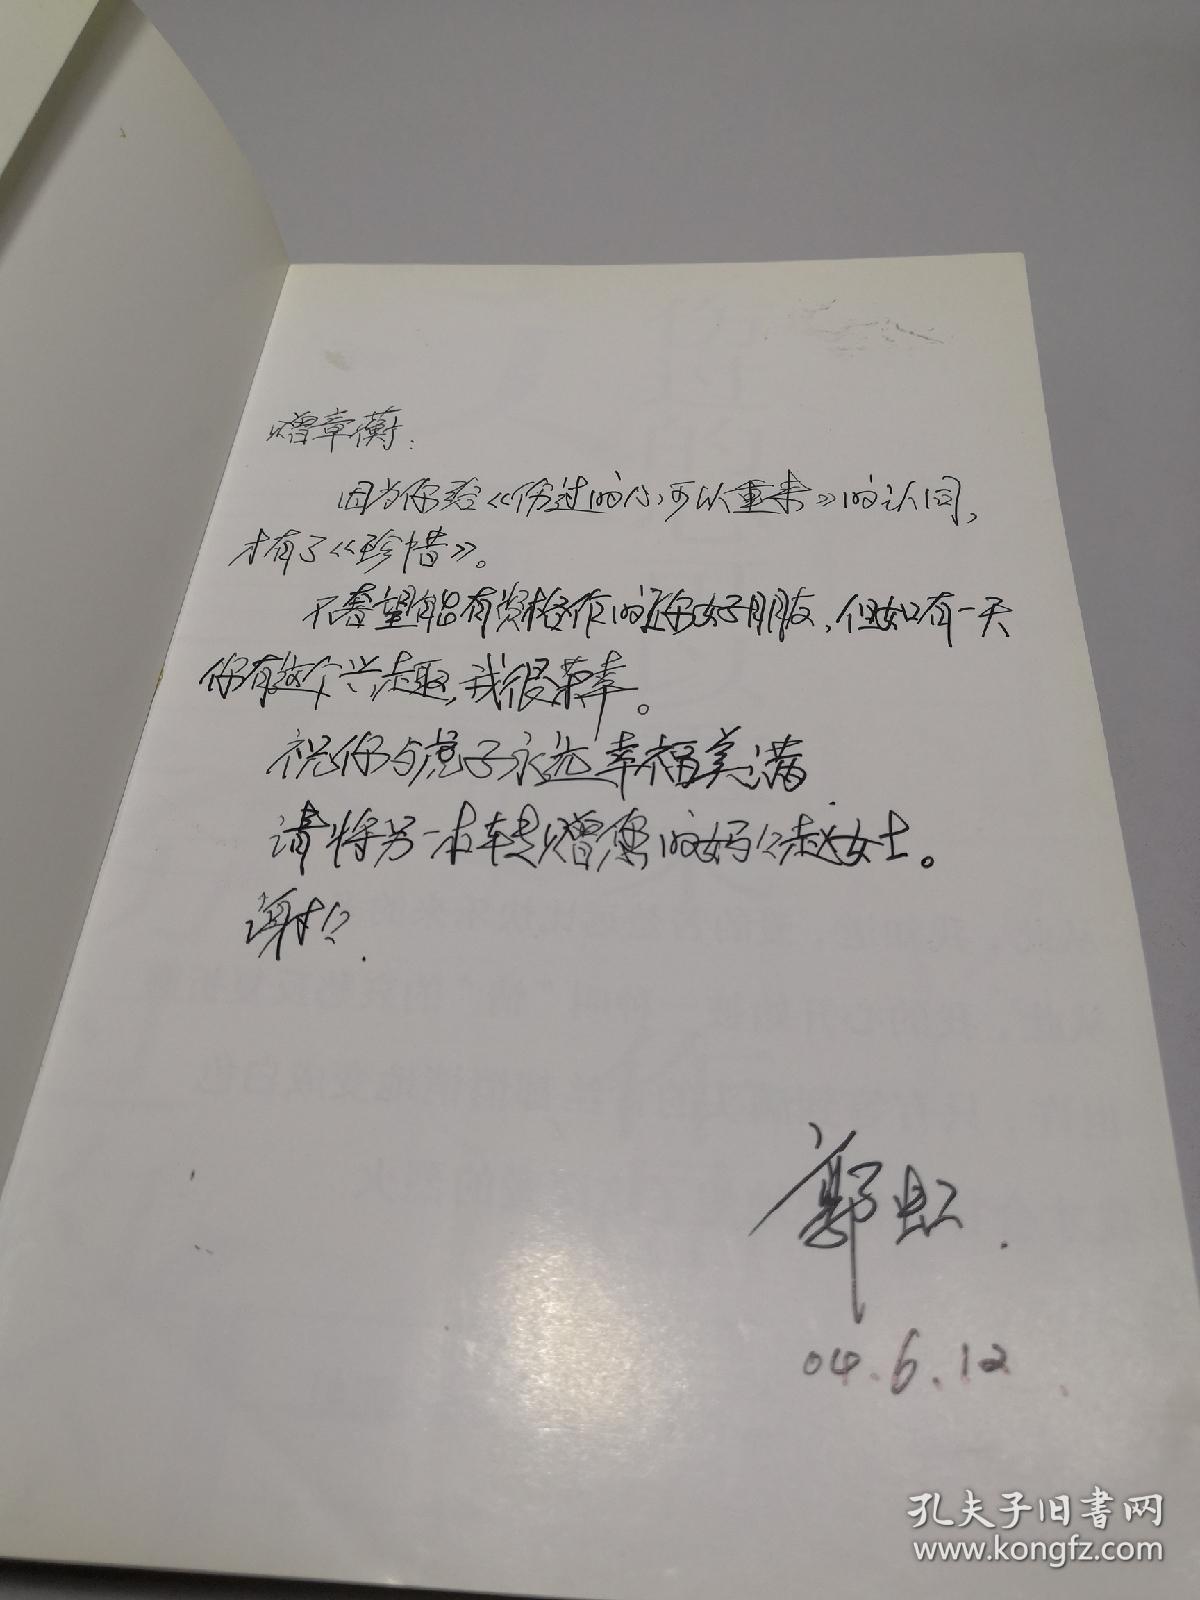 赠章蘅:
因为你给《伤过的心可以重来》的认同,
才有了《珍惜》。
不奢望能有资格作你好朋友,但如有一天
你有这个兴趣,我很荣幸。
祝你与范子永远幸福美满
请将另一本转赠您的妈妈赵女士。
谢谢
郭虹.
04.6.12.
孔夫子旧书网
www.kongfz.com